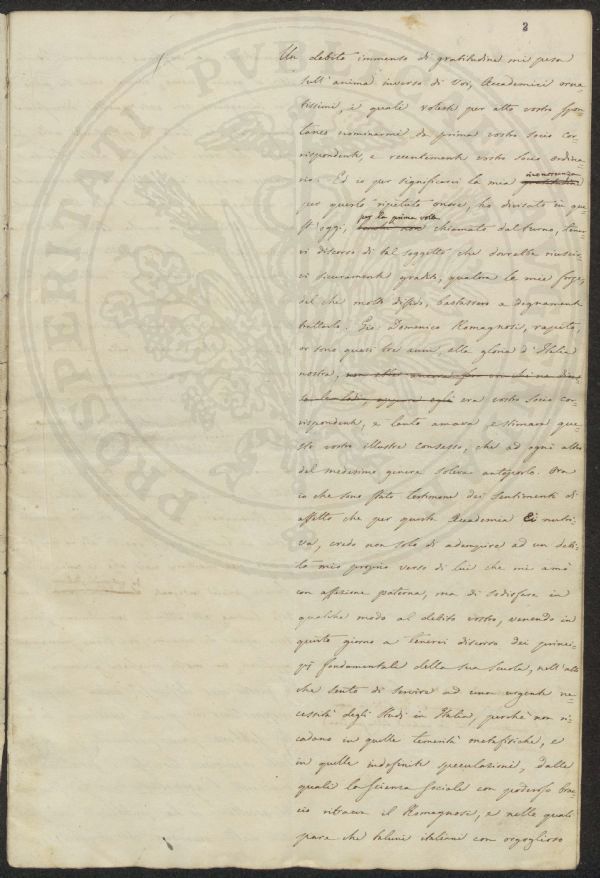 2
Un debito immenso di gratitudine mi pesa
sull'anima inverso di Voi, Accademici orna=
tissimi, i quali voleste per atto vostro spon=
taneo nominarmi da prima vostro socio cor=
rispondente, e recentemente vostro socio ordina=
rio. Ed io per significarvi la mia riconoscenza
per questo ripetuto onore, ho divisato in que=
st'oggi, per la prima volta chiamato dal turno, tener=
vi discorso di tal soggetto che dovrebbe riuscir=
vi sicuramente gradito, qualora le mie forze,
del che molto diffido, bastassero a degnamente
trattarlo. Gio: Domenico Romagnosi, rapito,
or sono quasi tre anni, alla gloria d'Italia
nostra, era vostro socio cor=
rispondente, e tanto amava e stimava que=
sto vostro illustre consesso, che ad ogni altro
del medesimo genere soleva anteporlo. Ora
io che sono stato testimone dei sentimenti di
affetto che per questa Accademia Ei nutri=
va, credo non solo di adempire ad un debi=
to mio proprio verso di lui che mi amò
con affezione paterna, ma di sodisfare in
qualche modo al debito vostro, venendo in
questo giorno a tenervi discorso dei princi=
pj fondamentali della sua scuola, nell'atto
che sento di servire ad una urgente ne=
cessità degli studi in Italia, perchè non ri=
cadano in quelle temerità metafisiche, e
in quelle indefinite speculazioni, dalle
quali la scienza sociale con poderoso brac=
cio ritraeva il Romagnosi, e nelle quali
pare che taluni italiani con orgoglioso
PROSPERITATI PUBL